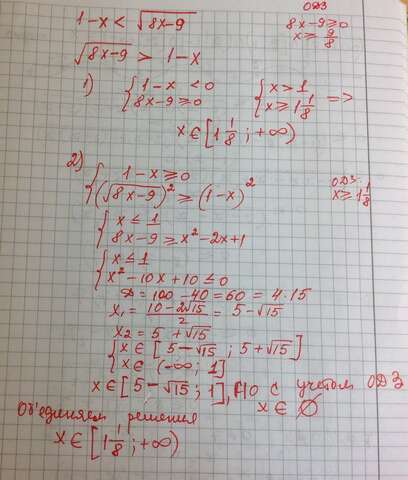 1-x < √8x-9
ОДЗ
8x-9≥0
x≥ 9/8
√8x-9 > 1-x
1) { 1-x < 0
8x-9≥0
{ x>1
x≥1 1/8 =>
x∈[1 1/8; +∞)
2) { 1-x≥0
(√8x-9)² ≥ (1-x)²
ОДЗ:
x≥1 1/8
{ x≤1
8x-9≥x²-2x+1
{ x≤1
x²-10x+10≤0
D=100-40=60=4·15
x₁= 10-2√15/2 = 5-√15
x₂=5+√15
{ x∈[5-√15; 5+√15]
x∈(-∞; 1]
x∈[5-√15; 1], Но с учетом ОДЗ
x∈∅
Объединяем решения
x∈[1 1/8; +∞)